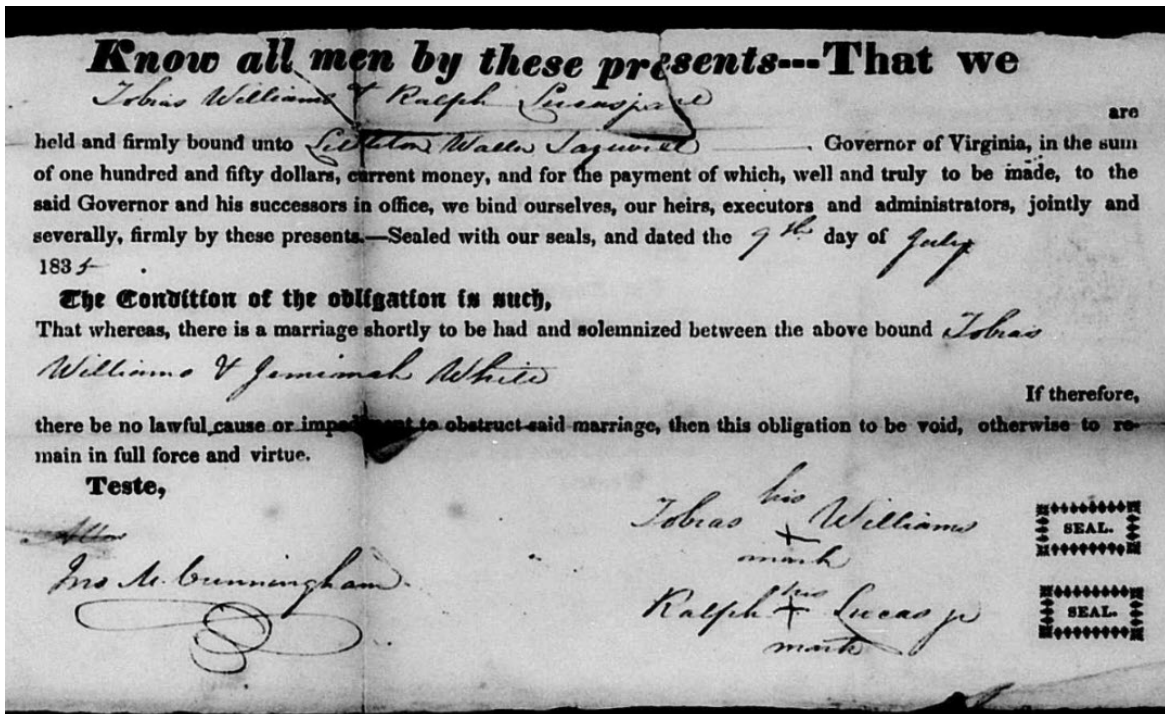 Know all men by these presents---That we
Tobias Williams & Ralph Lucas jr
are
held and firmly bound unto Littleton Waller Tazewell Governor of Virginia, in the sum
of one hundred and fifty dollars, current money, and for the payment of which, well and truly to be made, to the
said Governor and his successors in office, we bind ourselves, our heirs, executors and administrators, jointly and
severally, firmly by these presents.—Sealed with our seals, and dated the 9th day of July
1835 .
The Condition of the obligation is such,
That whereas, there is a marriage shortly to be had and solemnized between the above bound Tobias
Williams & Jemimah White
If therefore,
there be no lawful cause or impediment to obstruct said marriage, then this obligation to be void, otherwise to re-
main in full force and virtue.
Teste,
Jno M. Cunningham
his
Tobias + Williams
mark
SEAL.
his
Ralph + Lucas jr
mark
SEAL.